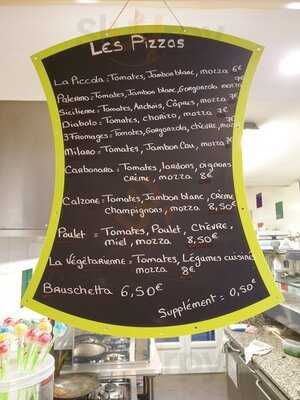 Les Pizzas
La Piccola = Tomates, Jambon blanc, mozza 6€
Palermo = Tomates, Jambon blanc, Gorgonzola mozza 7€
Sicilienne = Tomates, Anchois, Câpres, mozza 7€
Diabolo = Tomates, chorizo, mozza 7€
3 Fromages = Tomates, Gorgonzola, chèvre, mozza
Milano = Tomates, Jambon Cru, mozza 7€
Carbonara = Tomates, lardons, oignons
crème, mozza 8€
Calzone = Tomates, Jambon blanc, crème
champignons, mozza 8,50€
Poulet = Tomates, Poulet, Chèvre,
miel, mozza 8,50€
La Végétarienne = Tomates, Légumes cuisinés
mozza 8€
Bruschetta 6,50€
Supplément = 0,50€